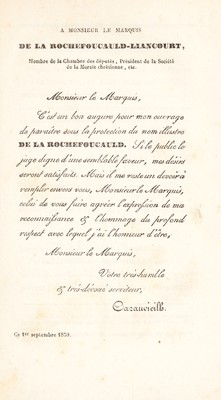 A MONSIEUR LE MARQUIS
DE LA ROCHEFOUCAULD-LIANCOURT,
Membre de la Chambre des députés, Président de la Société
de la Morale chrétienne, etc.
Monsieur le Marquis,
C'est un bon augure pour mon ouvrage
de paraître sous la protection du nom illustre
DE LA ROCHEFOUCAULD. Si le public le
juge digne d'une semblable faveur, mes désirs
seront satisfaits. Mais il me reste un devoir à
remplir envers vous, Monsieur le Marquis,
celui de vous faire agréer l'expression de ma
reconnaissance & l'hommage du profond
respect avec lequel j'ai l'honneur d'être,
Monsieur le Marquis,
Votre très-humble
& très-dévoué serviteur,
Cazauvieilh.
Ce 1er septembre 1839.